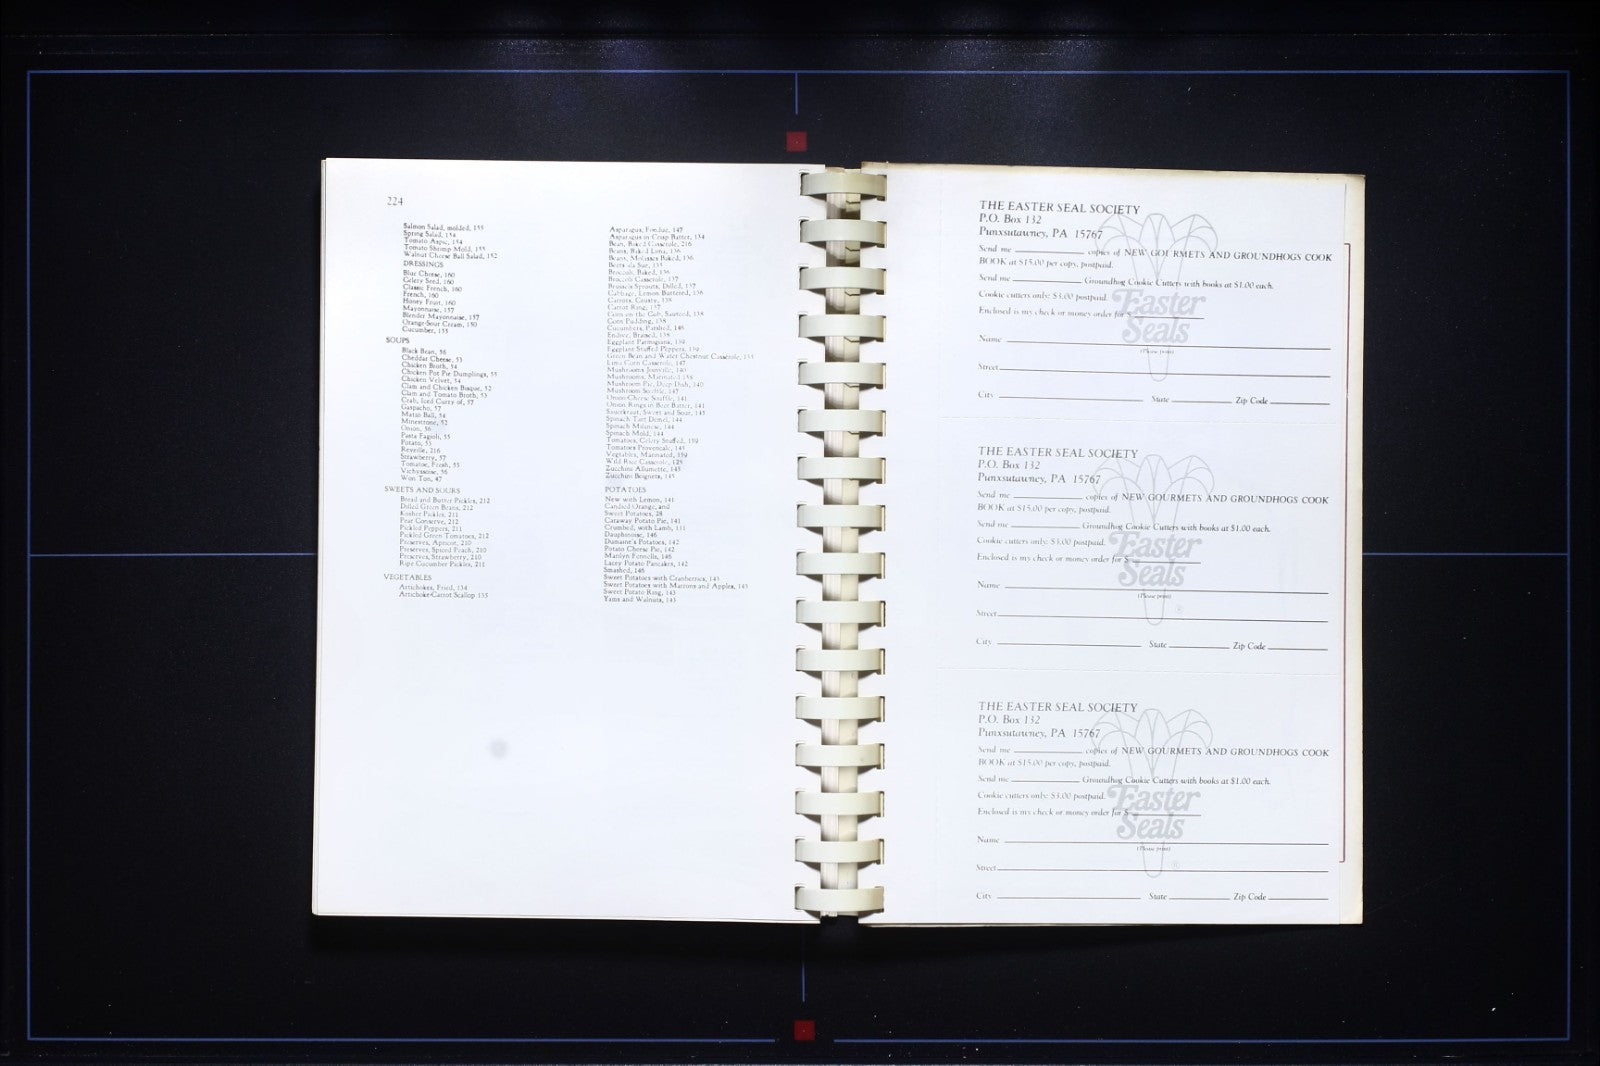 224
Salmon Salad, molded, 155
Spring Salad, 154
Tomato Aspic, 154
Tomato Shrimp Mold, 155
Walnut Cheese Ball Salad, 152
DRESSINGS
Blue Cheese, 160
Celery Seed, 160
Classic French, 160
French, 160
Honey Fruit, 160
Mayonnaise, 157
Blender Mayonnaise, 157
Orange-Sour Cream, 150
Cucumber, 155
SOUPS
Black Bean, 56
Cheddar Cheese, 53
Chicken Broth, 54
Chicken Pot Pie Dumplings, 55
Chicken Velvet, 54
Clam and Chicken Bisque, 52
Clam and Tomato Broth, 53
Crab, Iced Curry of, 57
Gaspacho, 57
Matzo Ball, 54
Minestrone, 52
Onion, 56
Pasta Fagioli, 55
Potato, 55
Reveille, 216
Strawberry, 57
Tomatoe, Fresh, 55
Vichyssoise, 56
Won Ton, 47
SWEETS AND SOURS
Bread and Butter Pickles, 212
Dilled Green Beans, 212
Kosher Pickles, 211
Pear Conserve, 212
Pickled Peppers, 211
Pickled Green Tomatoes, 212
Preserves, Apricot, 210
Preserves, Spiced Peach, 210
Preserves, Strawberry, 210
Ripe Cucumber Pickles, 211
VEGETABLES
Artichokes, Fried, 134
Artichoke-Carrot Scallop 135
Asparagus, Fondue, 147
Asparagus in Crisp Batter, 134
Bean, Baked Casserole, 216
Beans, Baked Lima, 136
Beans, Molasses Baked, 136
Beets da Sur, 135
Broccoli, Baked, 136
Broccoli Casserole, 137
Brussels Sprouts, Dilled, 137
Cabbage, Lemon Buttered, 136
Carrots, Crusty, 138
Carrot Ring, 137
Corn on the Cob, Sauteed, 138
Corn Pudding, 138
Cucumbers, Parslied, 146
Endive, Braised, 138
Eggplant Parmigiana, 139
Eggplant Stuffed Peppers, 139
Green Bean and Water Chestnut Casserole, 135
Lima Corn Casserole, 147
Mushrooms Joinville, 140
Mushrooms, Marinated 158
Mushroom Pie, Deep Dish, 140
Mushroom Souffle, 147
Onion-Cheese Souffle, 141
Onion Rings in Beer Batter, 141
Sauerkraut, Sweet and Sour, 145
Spinach Tart Denel, 144
Spinach Milanese, 144
Spinach Mold, 144
Tomatoes, Celery Stuffed, 159
Tomatoes Provencale, 145
Vegetables, Marinated, 159
Wild Rice Casserole, 125
Zucchini Allumette, 145
Zucchini Beignets, 145
POTATOES
New with Lemon, 141
Candied Orange, and
Sweet Potatoes, 28
Caraway Potato Pie, 141
Crumbed, with Lamb, 111
Dauphinoise, 146
Damaine's Potatoes, 142
Potato Cheese Pie, 142
Marilyn Fennells, 146
Lacey Potato Pancakes, 142
Smashed, 146
Sweet Potatoes with Cranberries, 143
Sweet Potatoes with Marrons and Apples, 143
Sweet Potato Ring, 143
Yams and Walnuts, 143
THE EASTER SEAL SOCIETY
P.O. Box 132
Punxsutawney, PA 15767
Send me copies of NEW GOURMETS AND GROUNDHOGS COOK
BOOK at $15.00 per copy, postpaid.
Send me Groundhog Cookie Cutters with books at $1.00 each.
Cookie cutters only: $3.00 postpaid.
Enclosed is my check or money order for $
Easter
Seals
Name
(Please print)
Street
City State Zip Code
THE EASTER SEAL SOCIETY
P.O. Box 132
Punxsutawney, PA 15767
Send me copies of NEW GOURMETS AND GROUNDHOGS COOK
BOOK at $15.00 per copy, postpaid.
Send me Groundhog Cookie Cutters with books at $1.00 each.
Cookie cutters only: $3.00 postpaid.
Enclosed is my check or money order for $
Easter
Seals
Name
(Please print)
®
Street
City State Zip Code
THE EASTER SEAL SOCIETY
P.O. Box 132
Punxsutawney, PA 15767
Send me copies of NEW GOURMETS AND GROUNDHOGS COOK
BOOK at $15.00 per copy, postpaid.
Send me Groundhog Cookie Cutters with books at $1.00 each.
Cookie cutters only: $3.00 postpaid.
Enclosed is my check or money order for $
Easter
Seals
Name
(Please print)
®
Street
City State Zip Code